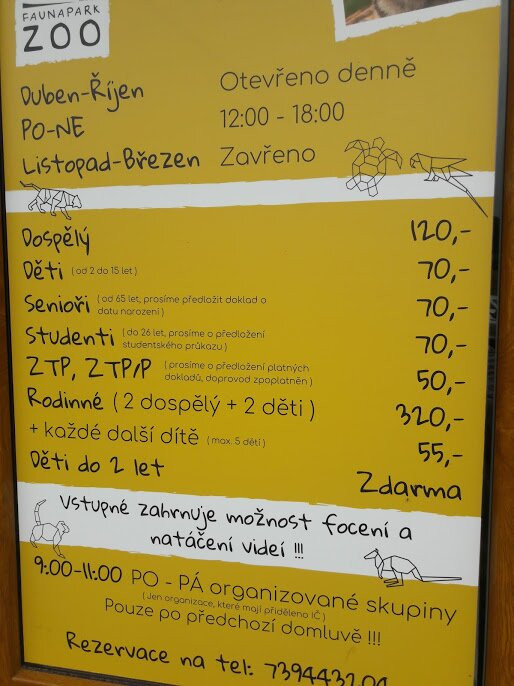 FAUNAPARK
ZOO
Duben-Říjen Otevřeno denně
PO-NE 12:00 - 18:00
Listopad-Březen Zavřeno
Dospělý 120,-
Děti ( od 2 do 15 let ) 70,-
Senioři ( od 65 let, prosíme předložit doklad o datu narození ) 70,-
Studenti ( do 26 let, prosíme o předložení studentského průkazu ) 70,-
ZTP, ZTP/P ( prosíme o předložení platných dokladů, doprovod zpoplatněn ) 50,-
Rodinné ( 2 dospělý + 2 děti ) 320,-
+ každé další dítě ( max. 5 dětí ) 55,-
Děti do 2 let Zdarma
Vstupné zahrnuje možnost focení a
natáčení videí !!!
9:00-11:00 PO - PÁ organizované skupiny
( Jen organizace, které mají přiděleno IČ )
Pouze po předchozí domluvě !!!
Rezervace na tel: 739443204